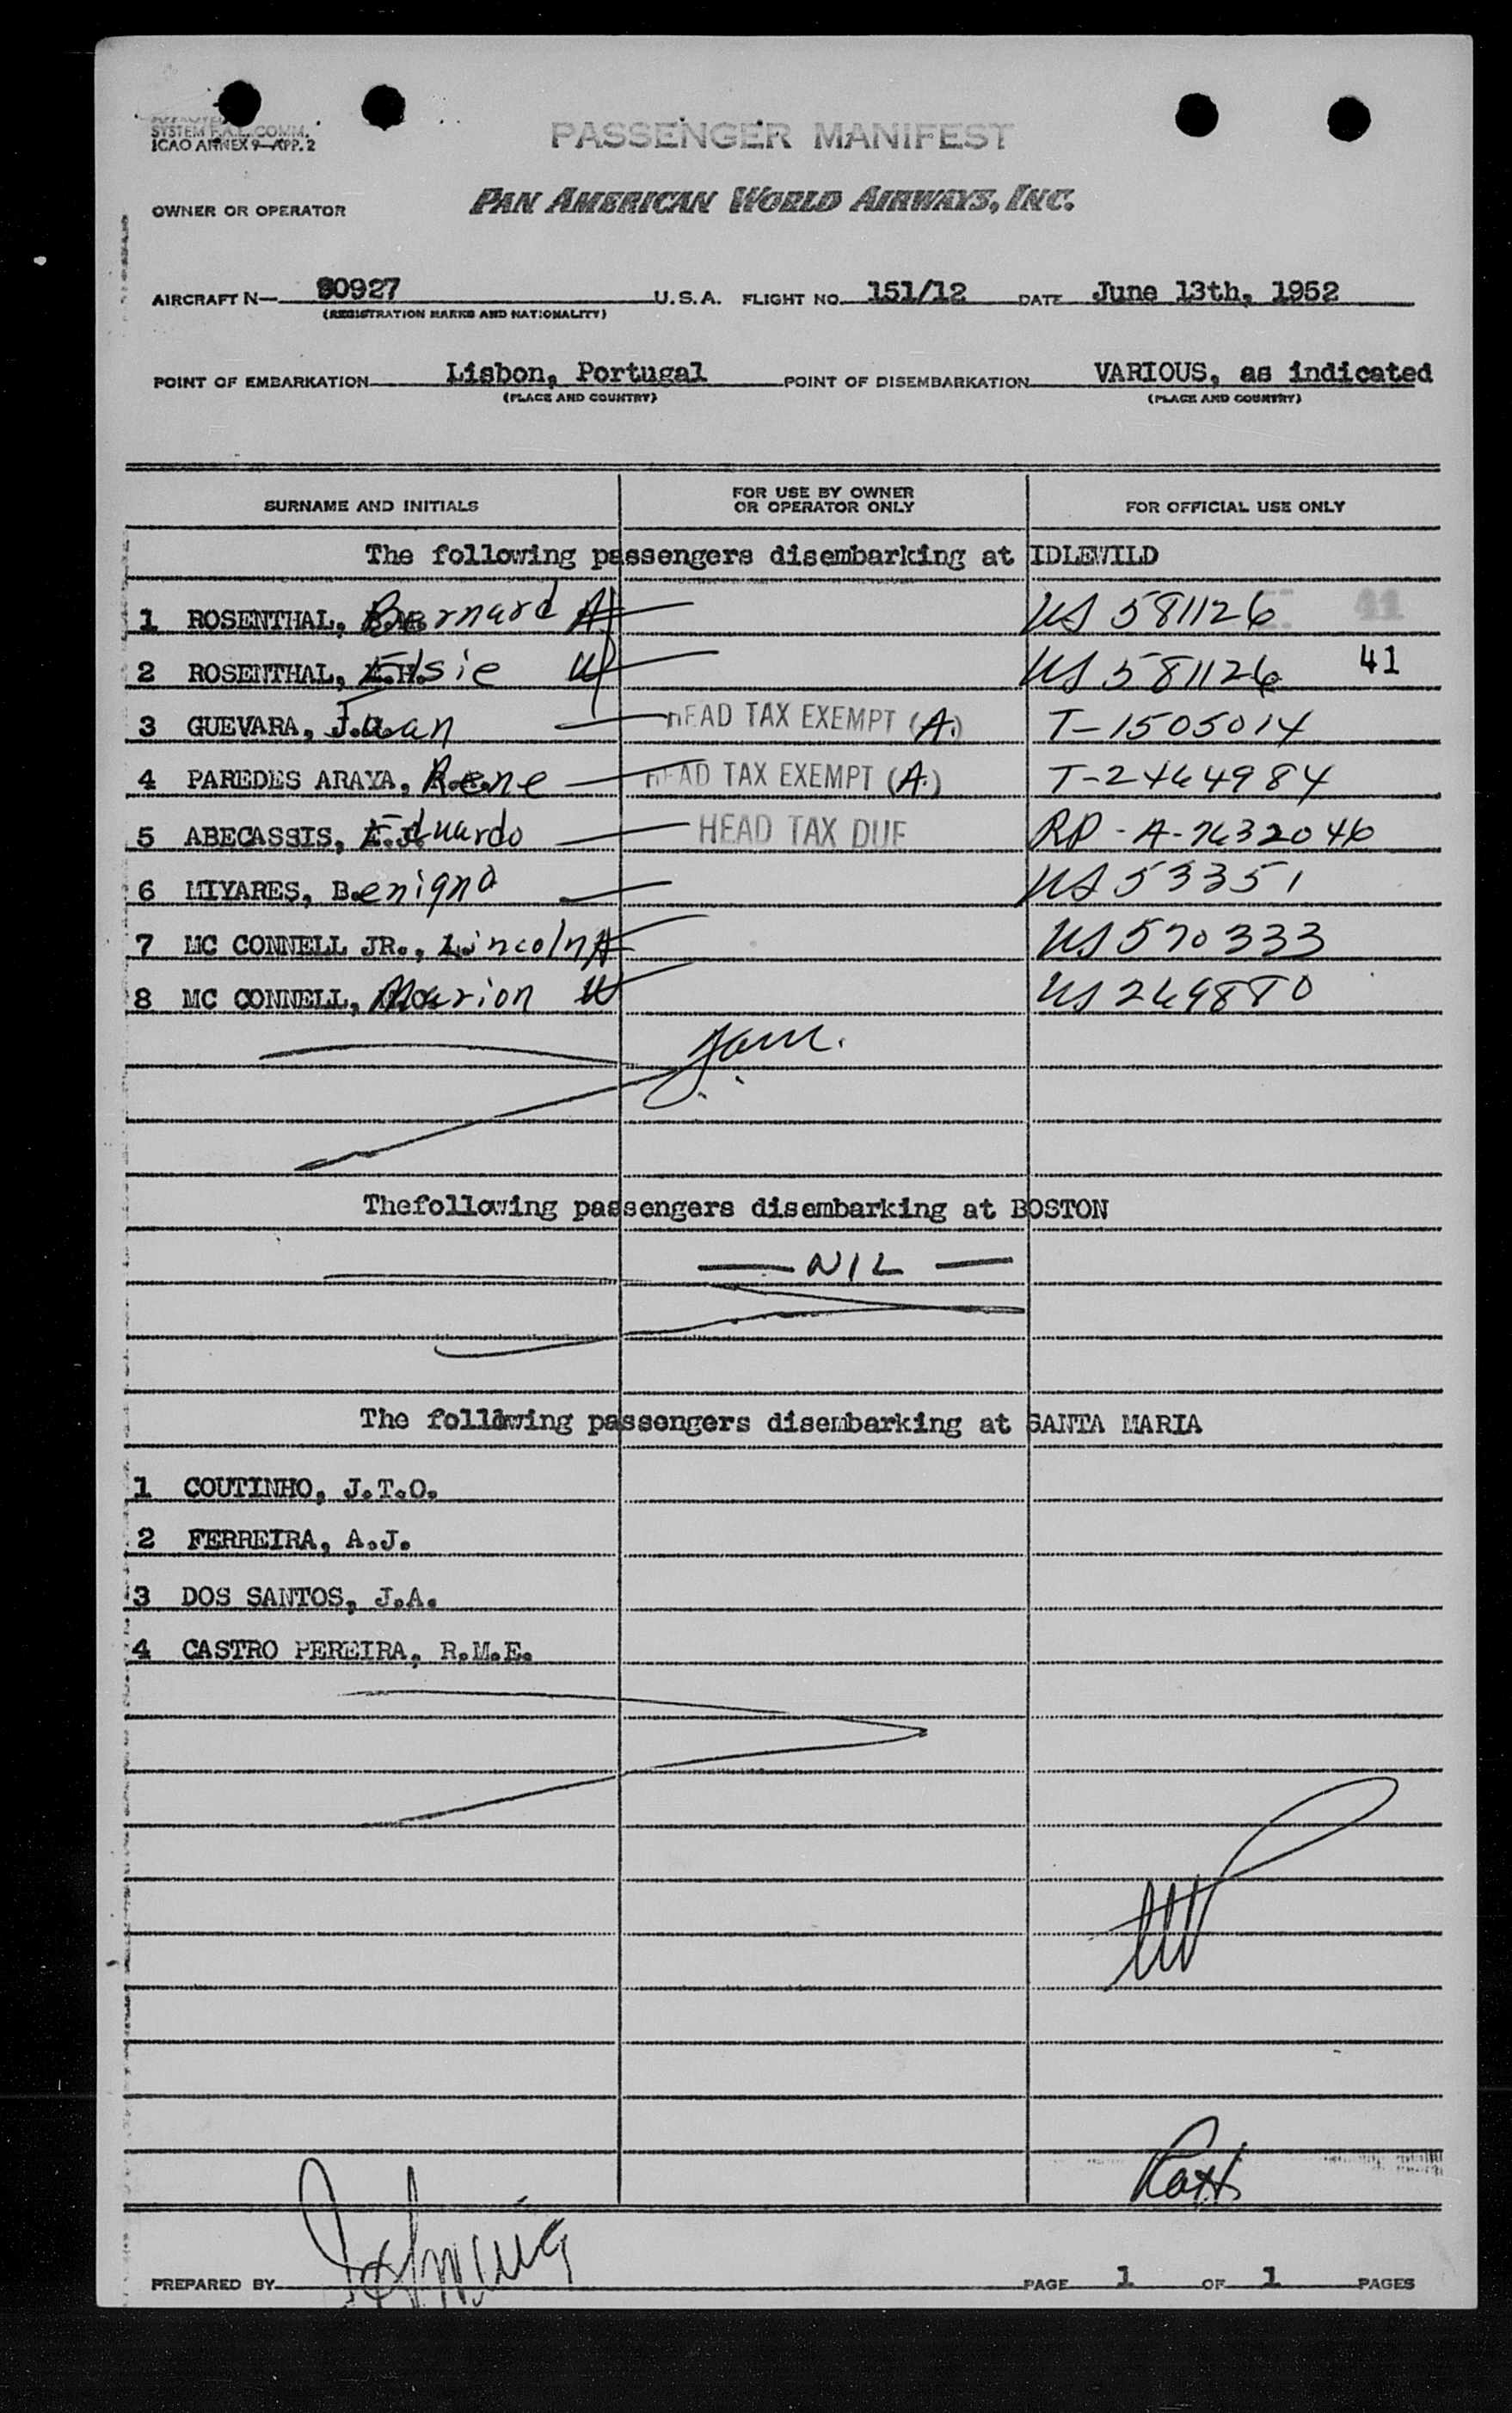 SYSTEM F.A.L. COMM.
ICAO ANNEX 9—APP. 2
PASSENGER MANIFEST
OWNER OR OPERATOR PAN AMERICAN WORLD AIRWAYS, INC.
AIRCRAFT N— 90927 U.S.A. FLIGHT NO. 151/12 DATE June 13th, 1952
(REGISTRATION MARKS AND NATIONALITY)
POINT OF EMBARKATION Lisbon, Portugal POINT OF DISEMBARKATION VARIOUS, as indicated
(PLACE AND COUNTRY) (PLACE AND COUNTRY)
SURNAME AND INITIALS FOR USE BY OWNER OR OPERATOR ONLY FOR OFFICIAL USE ONLY
The following passengers disembarking at IDLEWILD
1 ROSENTHAL, Bernard A US 581126 41
2 ROSENTHAL, Elsie US 581126 41
3 GUEVARA, Juan HEAD TAX EXEMPT (A.) T-1505014
4 PAREDES ARAYA, Rene HEAD TAX EXEMPT (A.) T-2464984
5 ABECASSIS, Eduardo HEAD TAX DUE RP-A-7632046
6 MIYARES, Benigno US 53351
7 MC CONNELL JR., Lincoln US 570333
8 MC CONNELL, Marion US 269880
Thefollowing passengers disembarking at BOSTON
— NIL —
The following passengers disembarking at SANTA MARIA
1 COUTINHO, J.T.O.
2 FERREIRA, A.J.
3 DOS SANTOS, J.A.
4 CASTRO PEREIRA, R.M.E.
PREPARED BY PAGE 1 OF 1 PAGES